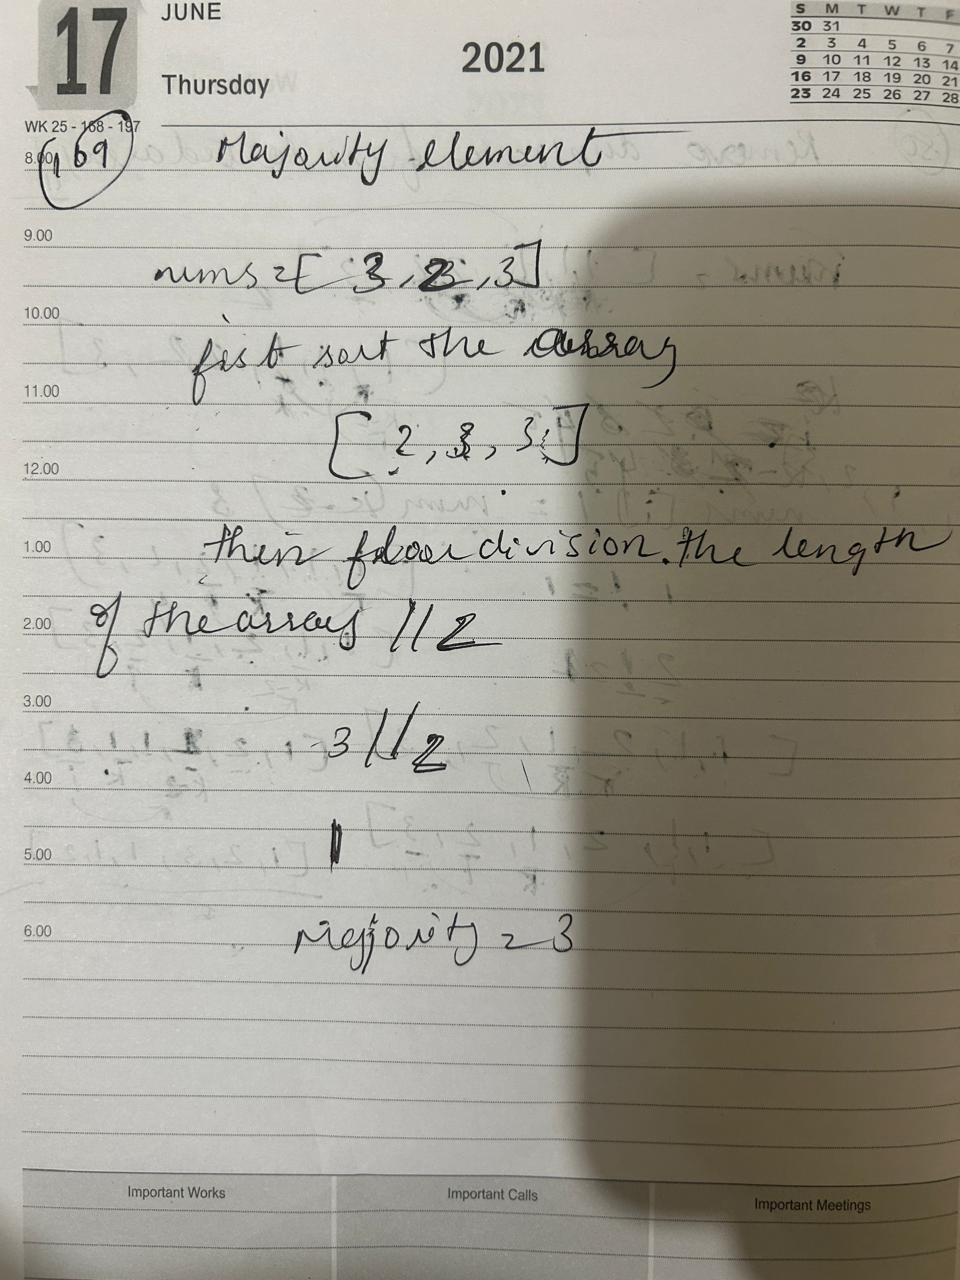 17
JUNE
Thursday
2021
S M T W T F
30 31
2 3 4 5 6 7
9 10 11 12 13 14
16 17 18 19 20 21
23 24 25 26 27 28
WK 25 - 168 - 197
8.00
169 Majority element
9.00
nums = [ 3, 2, 3]
10.00
fist sort the array
11.00
[ 2, 3, 3]
12.00
then floor division. the length
1.00
of the array // 2
2.00
3.00
3 // 2
4.00
1
5.00
Majority = 3
6.00
Important Works
Important Calls
Important Meetings